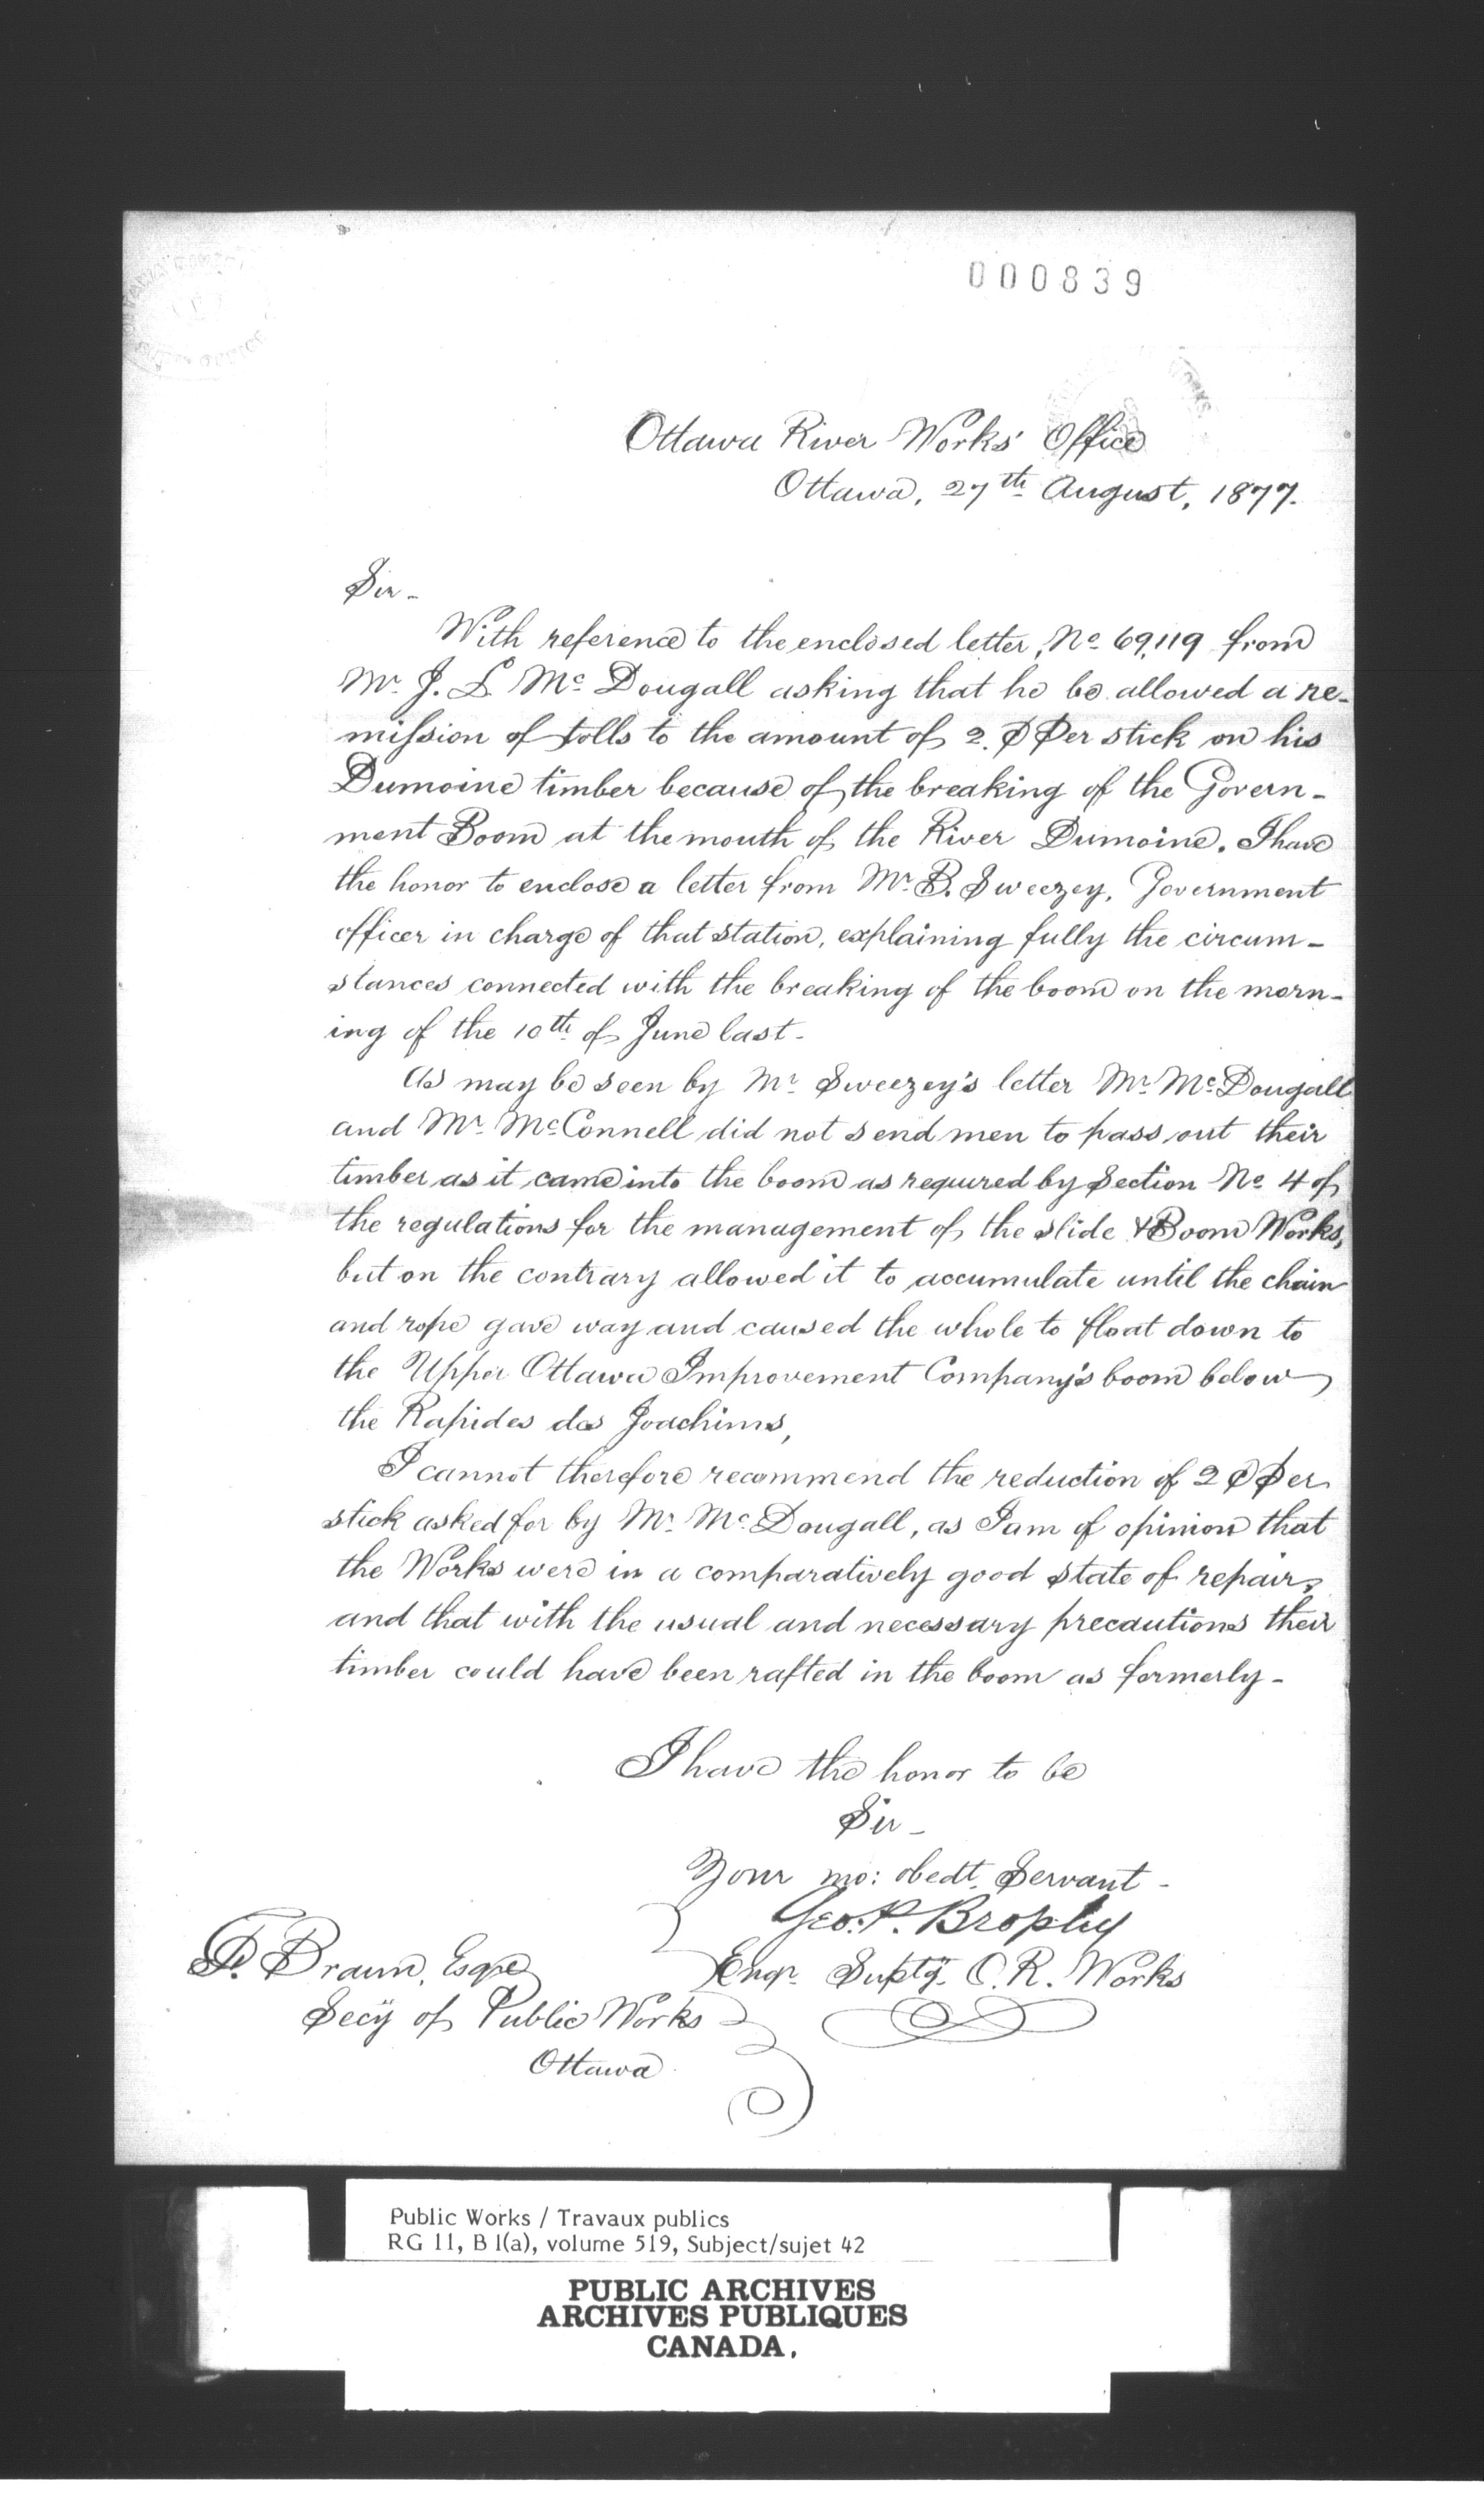 000839
Ottawa River Works' Office
Ottawa, 27th August, 1877.
Sir -
With reference to the enclosed letter, No 69,119 from
Mr. J. L. McDougall asking that he be allowed a re-
mission of tolls to the amount of 2. ¢ Per stick on his
Dumoine timber because of the breaking of the Govern-
ment Boom at the mouth of the River Dumoine. I have
the honor to enclose a letter from Mr. B. Sweezey, Government
officer in charge of that station, explaining fully the circum-
stances connected with the breaking of the boom on the morn-
ing of the 10th of June last -
As may be seen by Mr Sweezey's letter Mr. McDougall
and Mr. McConnell did not send men to pass out their
timber as it came into the boom as required by Section No 4 of
the regulations for the management of the slide & Boom Works,
but on the contrary allowed it to accumulate until the chain
and rope gave way and caused the whole to float down to
the Upper Ottawa Improvement Company's boom below
the Rapides des Joachims,
I cannot therefore recommend the reduction of 2 ¢ Per
stick asked for by Mr. McDougall, as I am of opinion that
the Works were in a comparatively good state of repair,
and that with the usual and necessary precautions their
timber could have been rafted in the boom as formerly -
I have the honor to be
Sir -
Your mo: obedt. Servant -
Geo. P. Brophy
Engr. Suptg. O. R. Works
F. Braun, Esqre
Secy of Public Works
Ottawa
Public Works / Travaux publics
RG 11, B 1(a), volume 519, Subject/sujet 42
PUBLIC ARCHIVES
ARCHIVES PUBLIQUES
CANADA.